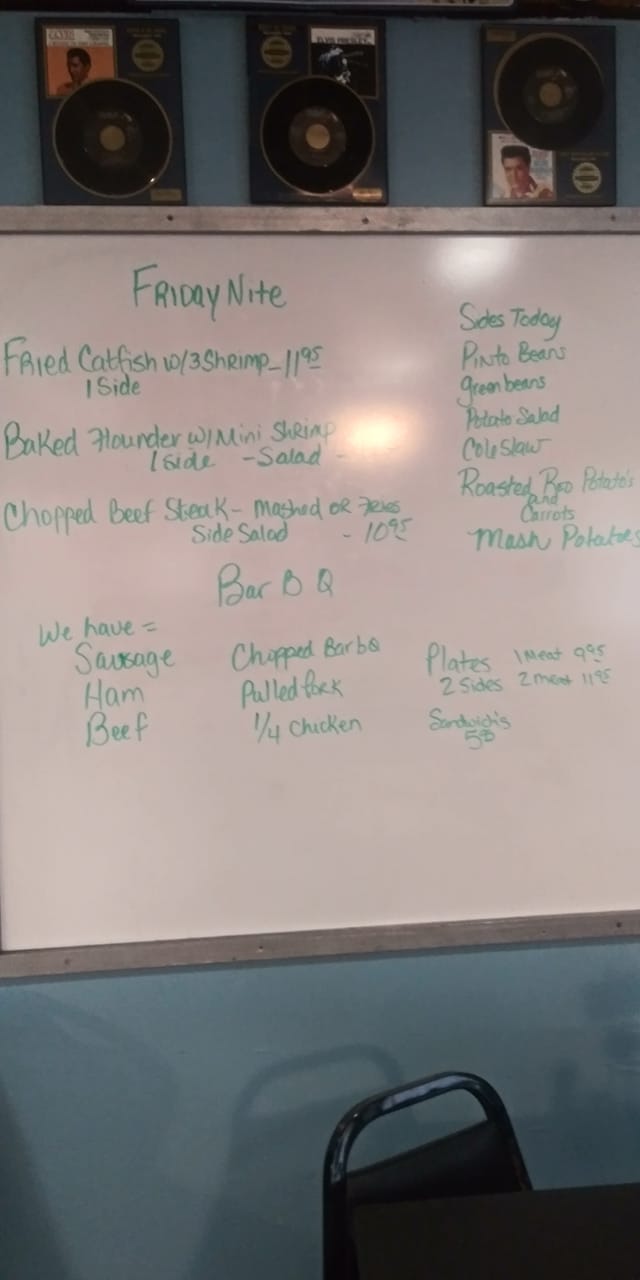 ELVIS PRESLEY
FRIDAY NITE
FRIED Catfish w/3 SHRIMP - 11 95
1 Side
BAKED Flounder w/Mini SHRIMP
1 side - Salad -
Chopped Beef Steak - Mashed OR Fries
Side Salad - 10 95
Sides Today
PINTO Beans
green beans
Potato Salad
Cole Slaw
Roasted Red Potato's
and
Carrots
Mash Potatoes
Bar B Q
We have =
Sausage
Ham
Beef
Chopped BarbQ
Pulled Pork
1/4 Chicken
Plates 1 Meat 9 95
2 Sides 2 meat 11 95
Sandwich's